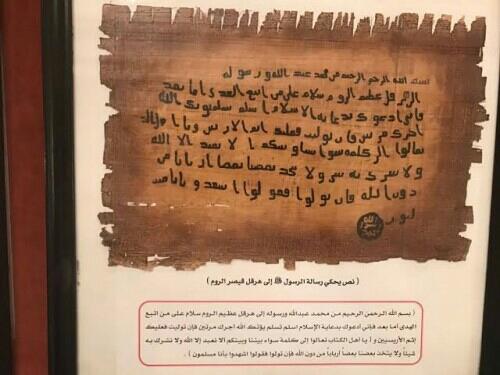 بسم الله الرحمن الرحيم من محمد عبد الله ورسوله
الى هرقل عظيم الروم سلام على من اتبع الهدى اما بعد
فانى ادعوك بدعاية الاسلام اسلم تسلم يوتك الله
اجرك مرتين فان توليت فعليك اثم الاريسين ويا اهل الكتاب
تعالوا الى كلمة سوا بيننا وبينكم الا نعبد الا الله
ولا نشرك به شيا ولا يتخذ بعضنا بعضا اربابا من
دون الله فان تولوا فقولوا اشهدوا بانا مس
لمون
الله
رسول
محمد
( نص يحكي رسالة الرسول ﷺ إلى هرقل قيصر الروم )
( بسم الله الرحمن الرحيم من محمد عبدالله ورسوله إلى هرقل عظيم الروم سلام على من اتبع
الهدى أما بعد فإني أدعوك بدعاية الإسلام اسلم تسلم يؤتك الله أجرك مرتين فإن توليت فعليك
إثم الأريسيين و ( يا أهل الكتاب تعالوا إلى كلمة سواء بيننا وبينكم ألا نعبد إلا الله ولا نشرك به
شيئاً ولا يتخذ بعضنا بعضاً أرباباً من دون الله فإن تولوا فقولوا اشهدوا بأنا مسلمون )